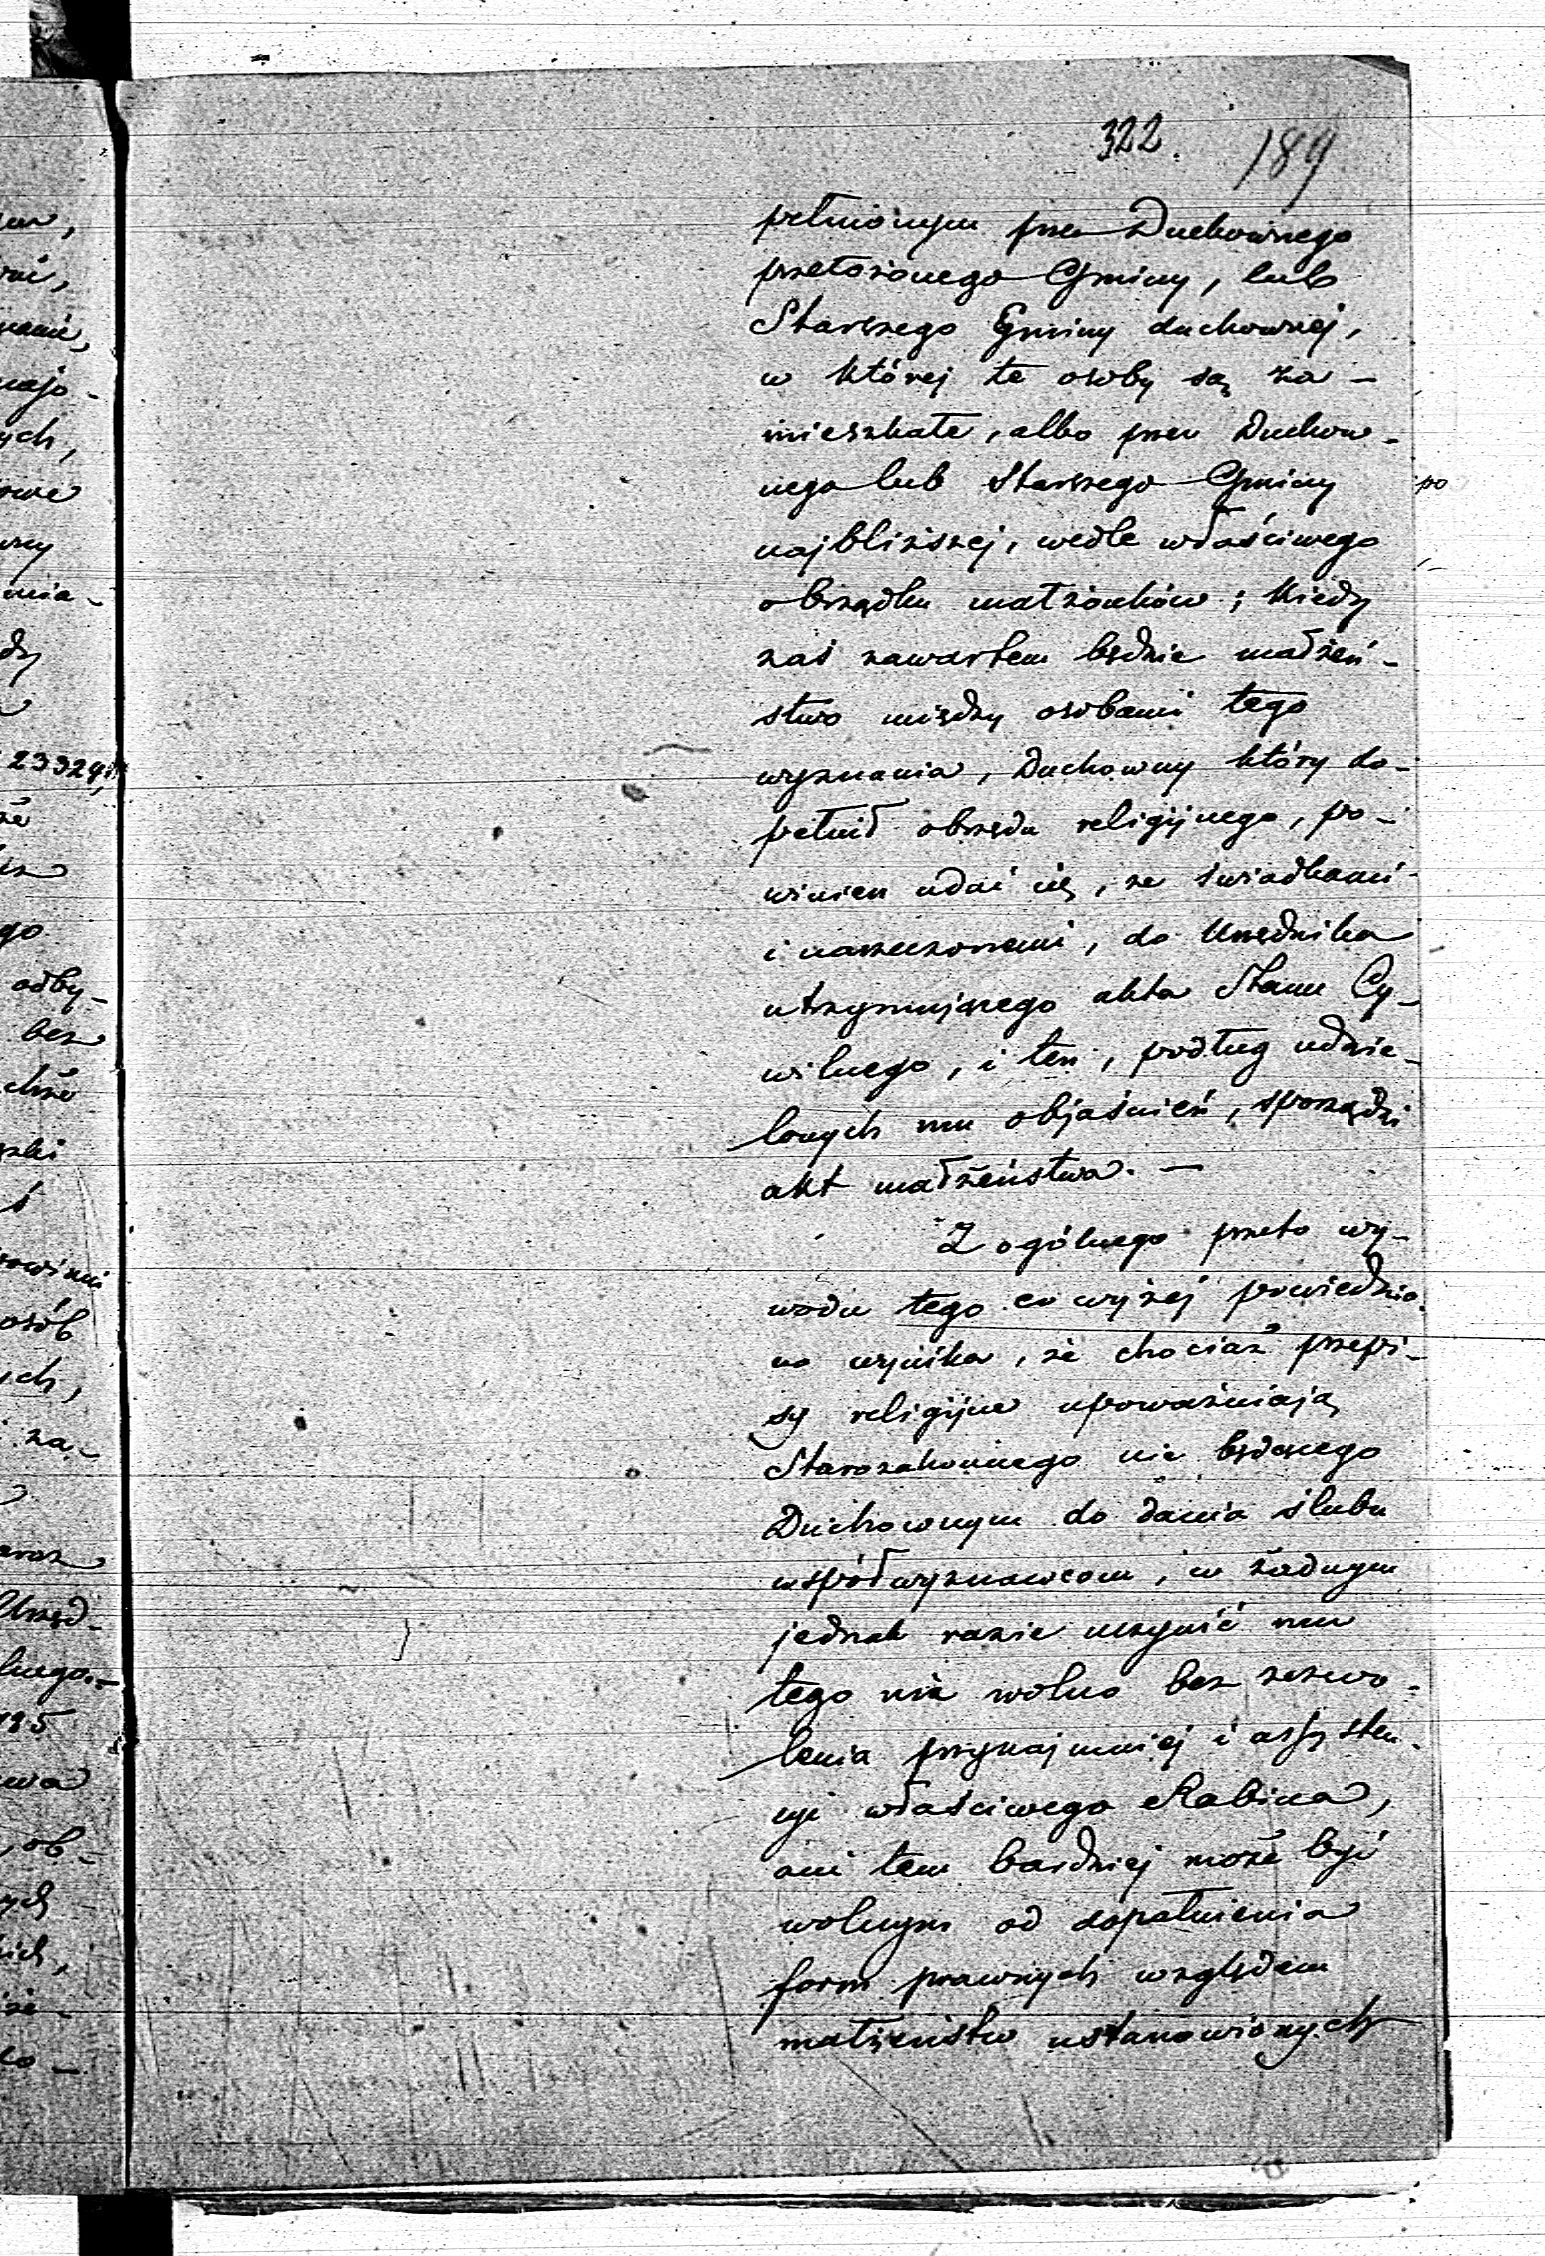 322. 189
pełnionym przez Duchownego
przełożonego Gminy, lub
Starszego Gminy duchownej,
w której te osoby są za-
mieszkałe, albo przez Duchow-
nego lub Starszego Gminy
najbliższej, wedle właściwego
obrządku małżonków; kiedy
zaś zawartem będzie małżeń-
stwo między osobami tego
wyznania, Duchowny który do-
pełnił obrzędu religijnego, po-
winien udać się, ze świadkami
i narzeczonemi, do Urzędnika
utrzymującego akta Stanu Cy-
wilnego, i ten, podług udzie-
lonych mu objaśnień, sporządzi
akt małżeństwa. —
Z ogólnego przeto wy-
wodu tego co wyżej powiedzia
no wynika, że chociaż przepi-
sy religijne upoważniają
Starozakonnego nie będącego
Duchownym do dania ślubu
współwyznawcom, w żadnym
jednak razie uczynić mu
tego nie wolno bez zezwo-
lenia przynajmniej i assysten-
cyi właściwego Rabina,
ani tem bardziej może być
wolnym od dopełnienia
form prawnych względem
małżeństw ustanowionych
po
23324,
go
odby-
bez
osób
ych,
za-
Urzęd-
lnego.-
ob-